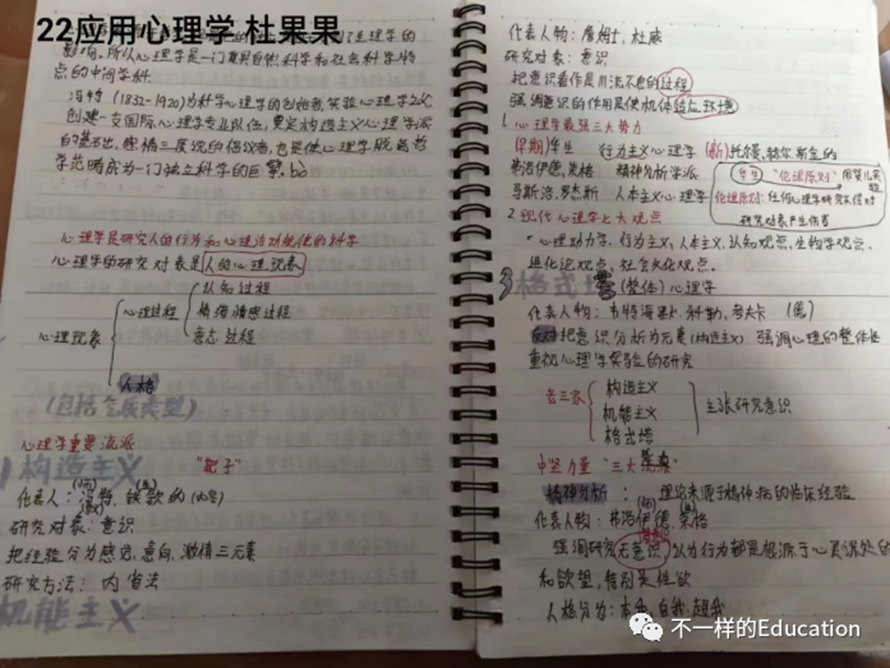 22应用心理学 杜果果
影响。所以心理学是一门兼具自然科学和社会科学特
点的中间学科.
冯特 (1832-1920)为科学心理学的创始者,实验心理学之父
创建一支国际心理学专业队伍,奠定构造主义心理学派
的基石出,感情三度说的倡议者,也是使心理学脱离哲
学范畴成为一门独立科学的巨
心理学是研究人的行为和心理活动规律的科学
心理学的研究对象是人的心理现象
心理现象
心理过程
认知过程
情绪情感过程
意志过程
人格
(包括气质类型)
心理学重要流派
1 构造主义 "靶子"
代表人:冯特,铁钦纳(内容)
研究对象:意识
把经验分为感觉,意向,激情三元素
研究方法:内省法
机能主义
代表人物:詹姆士,杜威
研究对象:意识
把意识看作是川流不息的过程
强调意识的作用是使机体适应环境
1. 心理学最强三大势力
(早期)华生 行为主义心理学 (新)托尔曼,赫尔,斯金纳
弗洛伊德,荣格 精神分析学派
马斯洛,罗杰斯 人本主义心理学
华生 "伦理原则" 用婴儿实验
伦理原则:任何心理学研究不得对
研究对象产生伤害
2. 现代心理学七大观点
心理动力学,行为主义,人本主义,认知观点,生物学观点,
进化论观点,社会文化观点。
3 格式塔(整体)心理学
代表人物:韦特海默,科勒,考夫卡 (德)
反对把意识分析为元素(构造主义) 强调心理的整体性
重视心理学实验的研究
老三家
构造主义
机能主义
格式塔
主张研究意识
中坚力量 "三大势力"
精神分析: 理论来源于精神病的临床经验
代表人物:弗洛伊德,荣格
强调研究无意识 认为行为都是根源于心灵深处的
和欲望,特别是性欲
人格分为:本我,自我,超我
不一样的Education